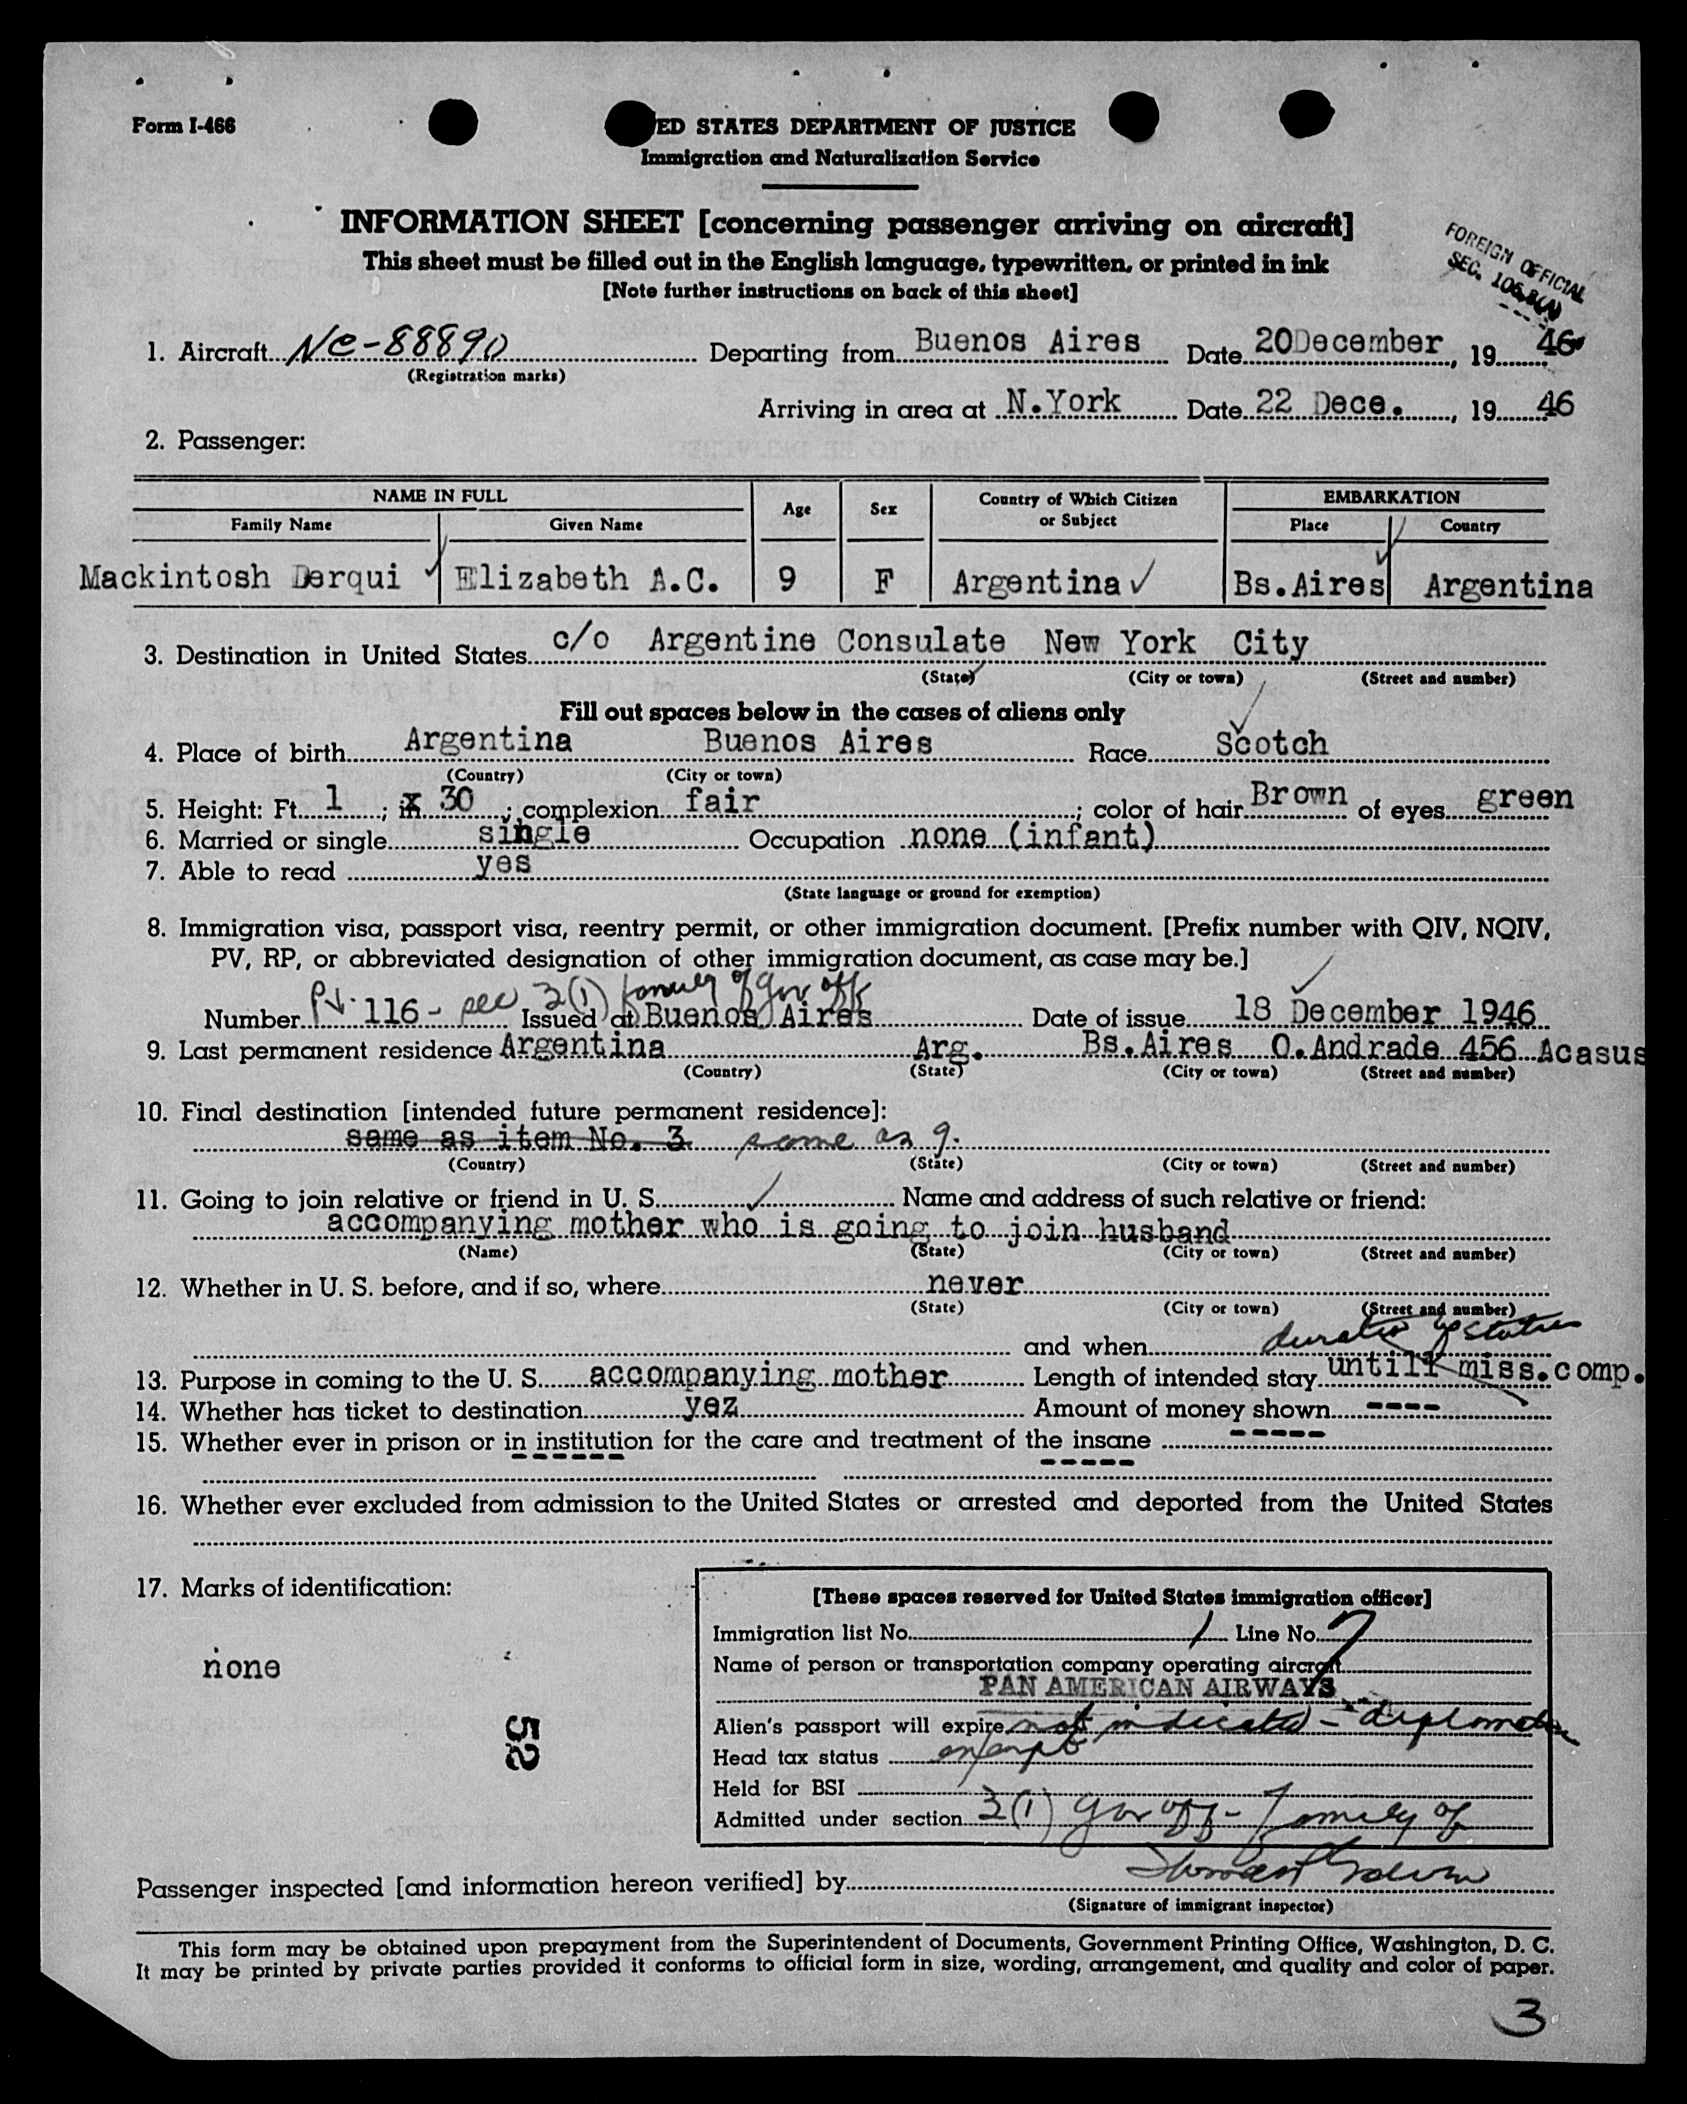 Form I-466
ED STATES DEPARTMENT OF JUSTICE
Immigration and Naturalization Service
INFORMATION SHEET [concerning passenger arriving on aircraft]
This sheet must be filled out in the English language, typewritten, or printed in ink
[Note further instructions on back of this sheet]
FOREIGN OFFICIAL
SEC.
1. Aircraft NC-88890 Departing from Buenos Aires Date 20December, 19 46
(Registration marks)
Arriving in area at N.York Date 22 Dece., 19 46
2. Passenger:
NAME IN FULL Age Sex Country of Which Citizen or Subject EMBARKATION
Family Name Given Name Place Country
Mackintosh Derqui Elizabeth A.C. 9 F Argentina Bs.Aires Argentina
3. Destination in United States c/o Argentine Consulate New York City
(State) (City or town) (Street and number)
Fill out spaces below in the cases of aliens only
4. Place of birth Argentina Buenos Aires Race Scotch
(Country) (City or town)
5. Height: Ft. 1 ; x 30 ; complexion fair ; color of hair Brown of eyes green
6. Married or single single Occupation none (infant)
7. Able to read yes
(State language or ground for exemption)
8. Immigration visa, passport visa, reentry permit, or other immigration document. [Prefix number with QIV, NQIV,
PV, RP, or abbreviated designation of other immigration document, as case may be.]
Number PV. 116 - sec 3(1) family of gov off Issued at Buenos Aires Date of issue 18 December 1946
9. Last permanent residence Argentina Arg. Bs.Aires O.Andrade 456 Acasus
(Country) (State) (City or town) (Street and number)
10. Final destination [intended future permanent residence]:
same as item No. 3 same as 9.
(Country) (State) (City or town) (Street and number)
11. Going to join relative or friend in U. S. Name and address of such relative or friend:
accompanying mother who is going to join husband
(Name) (State) (City or town) (Street and number)
12. Whether in U. S. before, and if so, where never
(State) (City or town) (Street and number)
and when duration of status
13. Purpose in coming to the U. S. accompanying mother Length of intended stay untill miss.comp.
14. Whether has ticket to destination yez Amount of money shown -----
15. Whether ever in prison or in institution for the care and treatment of the insane -----
------ -----
16. Whether ever excluded from admission to the United States or arrested and deported from the United States
17. Marks of identification:
none
52
[These spaces reserved for United States immigration officer]
Immigration list No. 1 Line No. 7
Name of person or transportation company operating aircraft
PAN AMERICAN AIRWAYS
Alien's passport will expire not indicated - diplomatic
Head tax status exempt
Held for BSI
Admitted under section 3(1) gov off - family of
Passenger inspected [and information hereon verified] by
(Signature of immigrant inspector)
This form may be obtained upon prepayment from the Superintendent of Documents, Government Printing Office, Washington, D. C.
It may be printed by private parties provided it conforms to official form in size, wording, arrangement, and quality and color of paper.
3